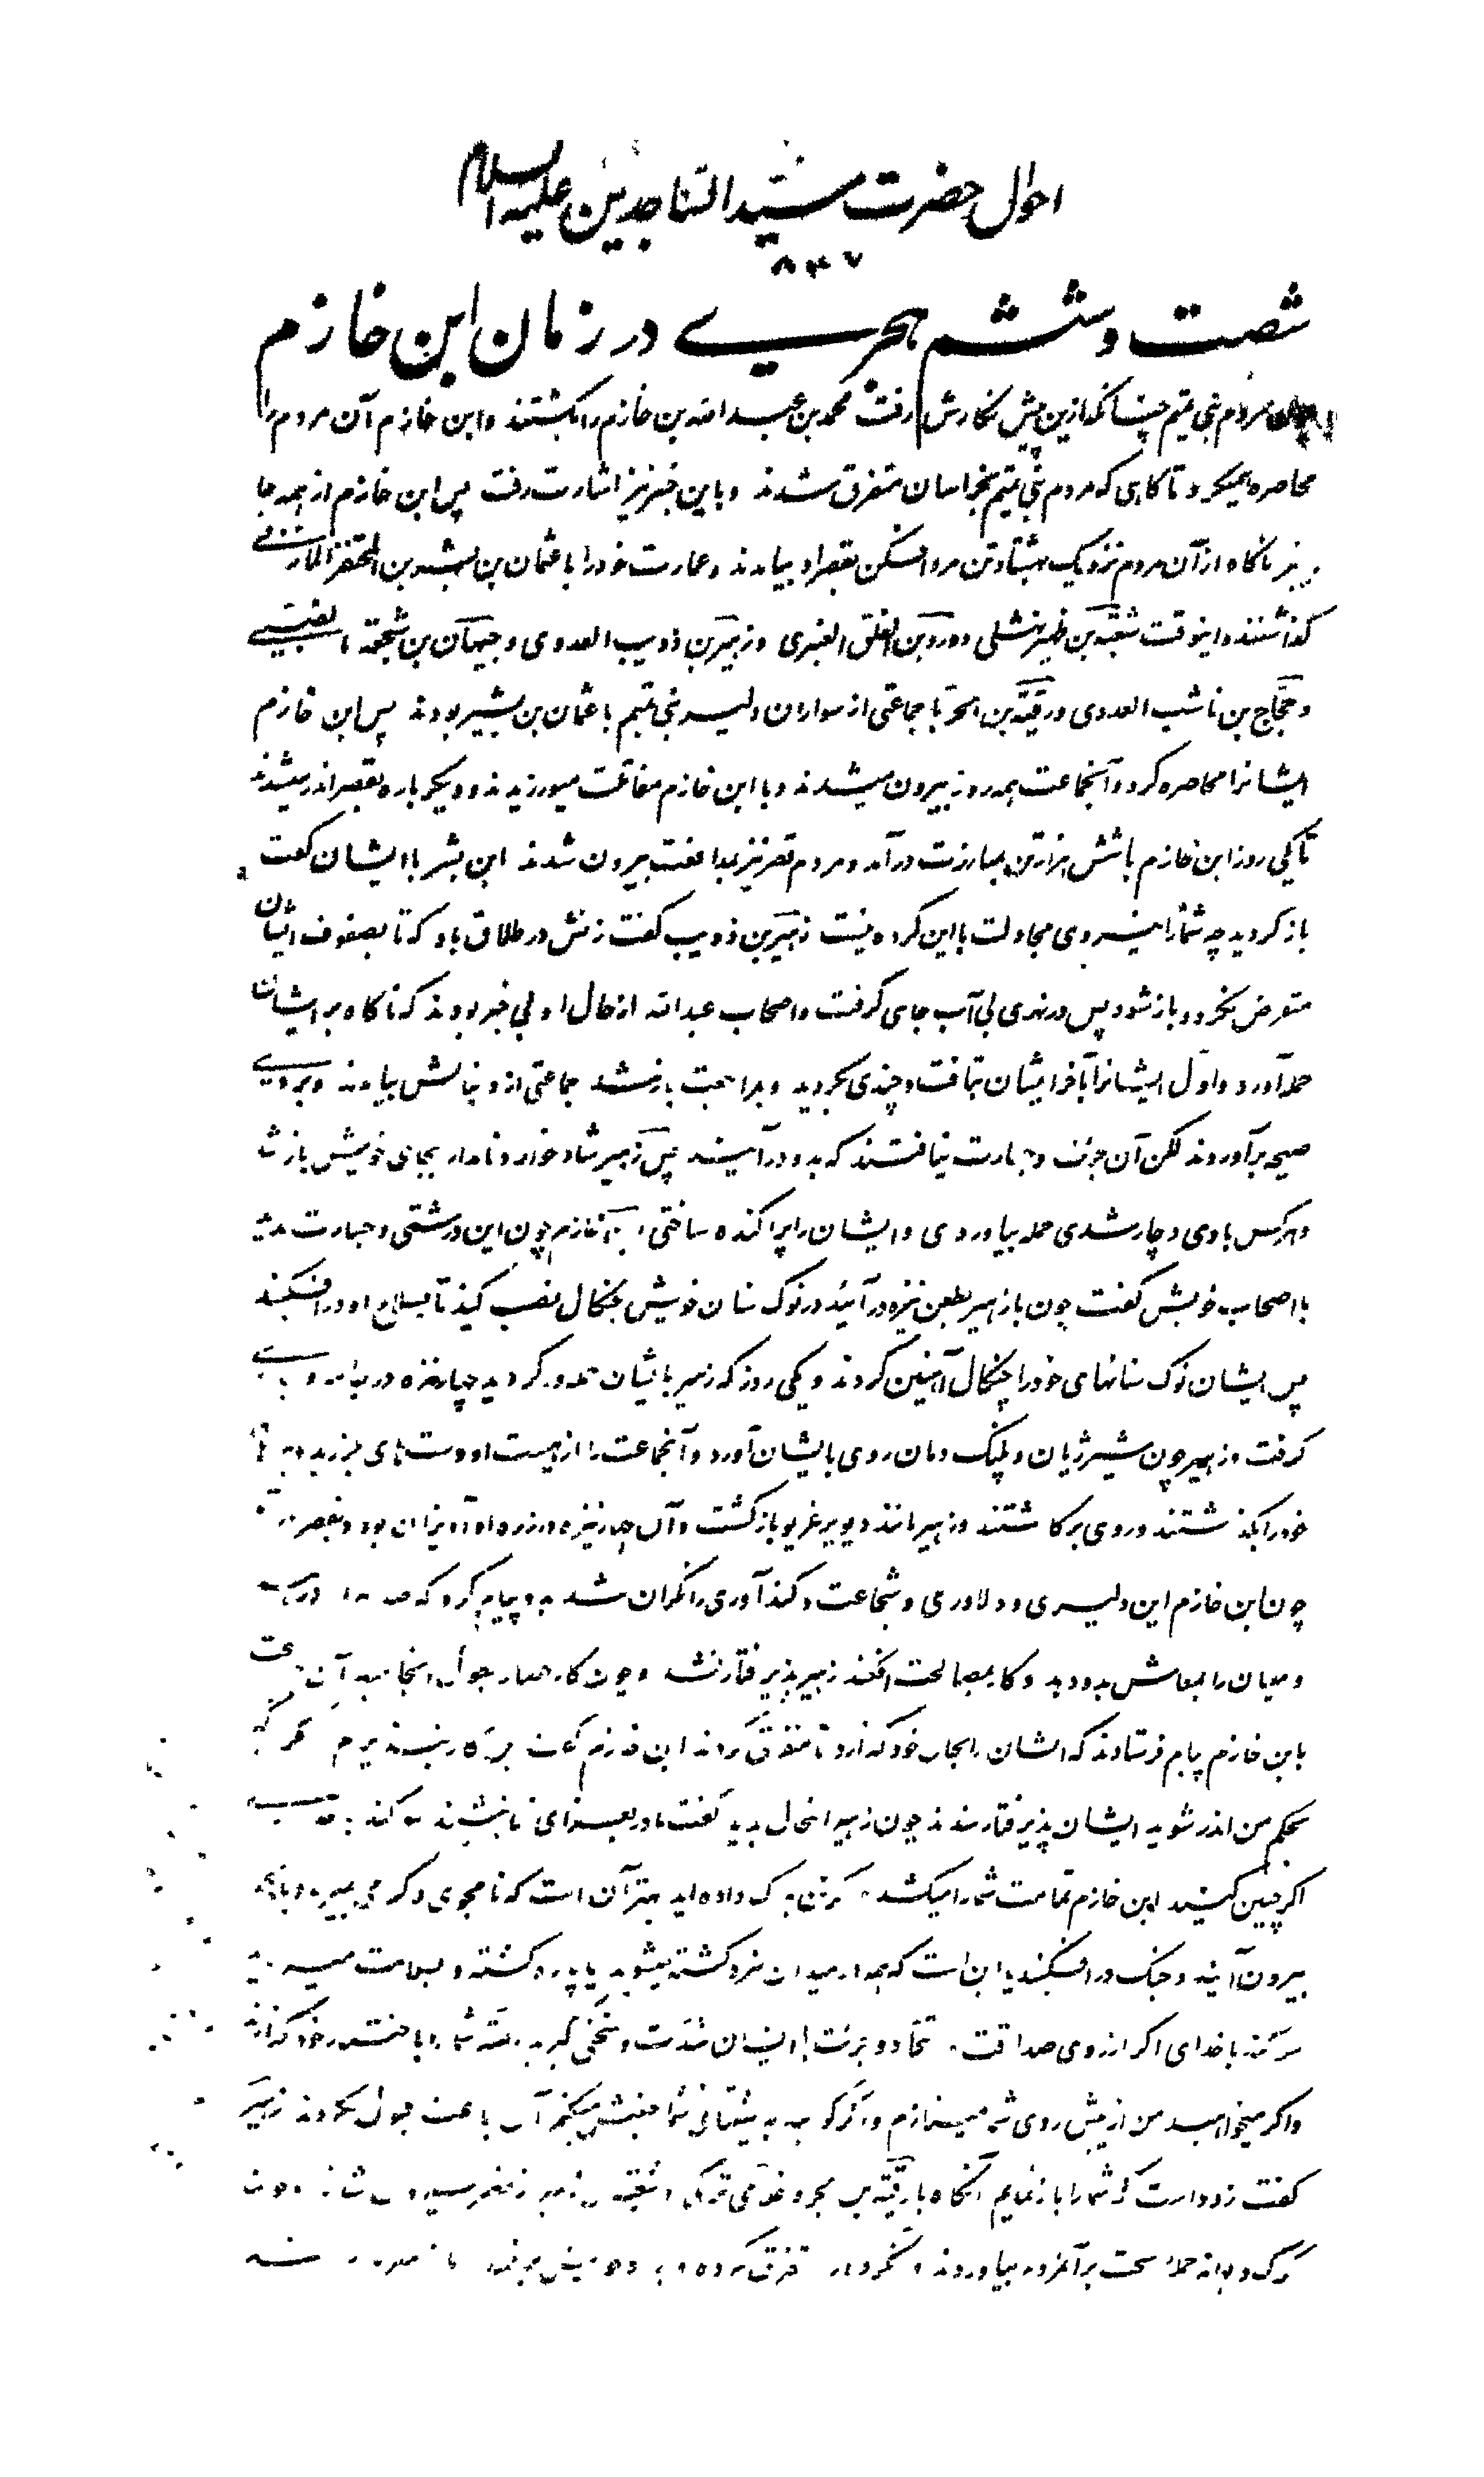 احوال حضرت سیّد السّاجدین علیه السلام
۸۳۷
شصت و ششم هجری در زمان ابن خازم
مردم بنی تمیم چنانکه ازین پیش نگارش رفت محمد بن عبد الله بن خازم را بکشتند و ابن خازم آن مردم را
محاصره همیکرد تا گاهی که مردم بنی تمیم بخراسان متفرق شدند و باین خبر نیز اشارت رفت پس ابن خازم از همه جا
ناگاه از آن مردم نزدیک هشتاد تن مرد افکن بقصر او بیامدند و عمارت خود را با عثمان بن بشر بن المحتفز المازنی
گذاشتند و اینوقت شعبة بن ظهیر نهشلی و ورد بن الفلق العنبری و زهیر بن ذویب العدوی و جیهان بن مشجعة الضبی
و حجّاج بن ناشب العدوی و رقیّة بن الحرّ با جماعتی از سواران دلیر بنی تمیم با عثمان بن بشیر بودند پس ابن خازم
ایشانرا محاصره کرد و آنجماعت همه روز بیرون میشدند و با ابن خازم مقاتلت میورزیدند و دیگر باره بقصر اندر میشدند
تا یکی روز ابن خازم با شش هزار تن بمبارزت در آمد و مردم قصر نیز بمدافعت بیرون شدند ابن بشر با ایشان گفت
باز گردید چه شما را نیروی مجادلت با این گروه نیست زهیر بن ذویب گفت زنش در طلاق باد که تا بصفوف ایشان
متعرض نگردد باز شود پس در نهری بی آب جای گرفت و اصحاب عبد الله از حال او بی خبر بودند که ناگاه بر ایشان
حمله آورد و اول ایشانرا تا بآخر ایشان بتافت و چندی بگردید و بمراجعت باز شد جماعتی از دنبالش بیامدند و بروی
صیحه برآوردند لکن آن جرئت و جسارت نیافتند که بدو در آیند پس زهیر شاد خوار و نامدار بجای خویش باز شد
و هر کس با وی دچار شدی حمله بیاوردی و ایشان را پراکنده ساختی ابن خازم چون این درشتی و جسارت بدید
با اصحاب خویش گفت چون با زهیر بطعن نیزه در آئید در نوک سنان خویش چنگال نصب کنید تا بسلاح او در افکنید
پس ایشان نوک سنانهای خود را چنگال آهنین کردند و یکی روز که زهیر با ایشان حمله ور گردید چهار نیزه در
گرفت و زهیر چون شیر ژیان و پلنگ دمان روی بایشان آورد و آنجماعت را از هیبت او دست های بلرزید
خود را بگذاشتند و روی برگاشتند و زهیر مانند دیو پر غریو باز گشت و آن چهار نیزه در زره او آویزان بود و بقصر در آمد
چون ابن خازم این دلیری و دلاوری و شجاعت و کند آوری را نگران شد بدو پیام کرد که
و میسان را بمعاش بدو دهد و کار بمصالحت افکند زهیر پذیرفتار نشد و چون کار حصار بطول انجامید آن جماعت
بابن خازم پیام فرستادند که ایشان را بحال خود گذارد تا متفرق گردند ابن خازم گفت نمی پذیرم مگر که
بحکم من اندر شوید ایشان پذیرفتار شدند چون زهیر اینحال بدید گفت مادر بعزای شما بنشیند سوگند
اگر چنین کنید ابن خازم تمامت شما را میکشد اگر تن بمرگ داده اید بهتر آن است که نامجوی و گرامی بمیرید
بیرون آئید و جنگ در افکنید یا این است که همه در میدان نبرد کشته میشوید یا پاره کشته و بسلامت
سوگند با خدای اگر از روی صداقت با ایشان شدت و سختی گیرید
و اگر میخواهید من از پیش روی شما میتازم و اگر گوئید به پشتیبانی شما جنبش میکنم آن جماعت قبول نکردند زهیر
گفت زود است که شما را باز نمایم آنگاه با رقیّة بن حر و غلامی ترکی و شعبة بن ظهیر
حمله سخت بر آن مردم بیاوردند